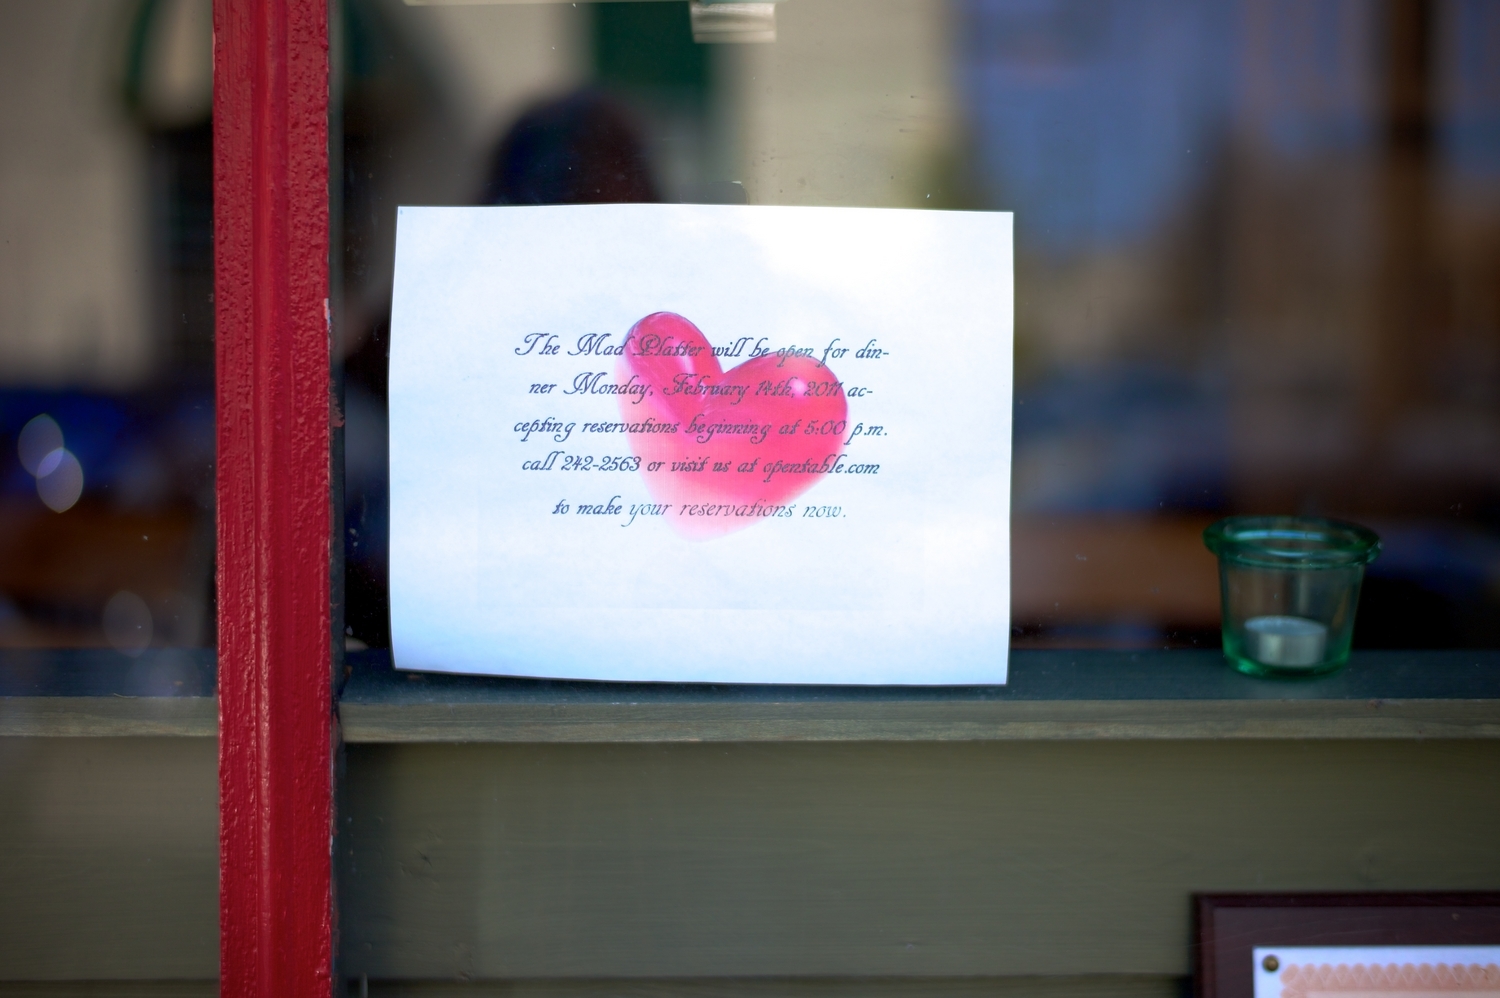 The Mad Platter will be open for din-
ner Monday, February 14th, 2011 ac-
cepting reservations beginning at 5:00 p.m.
call 242-2563 or visit us at opentable.com
to make your reservations now.